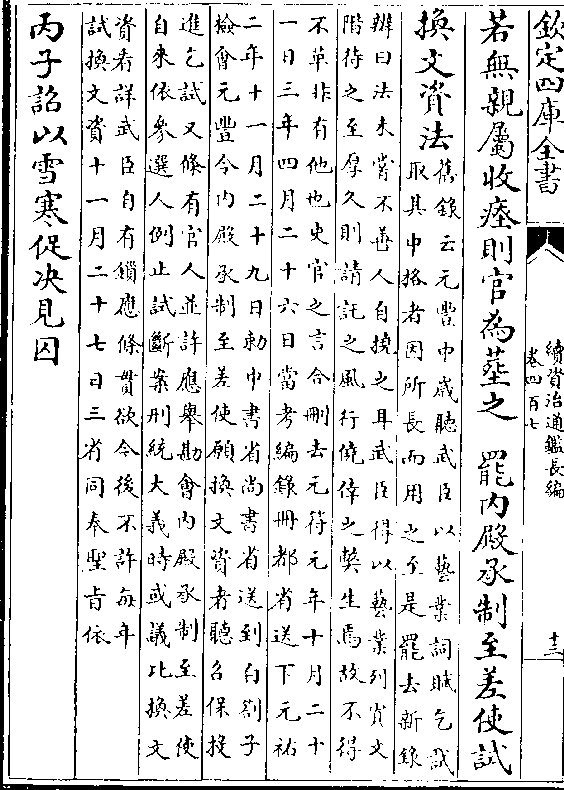 欽定四庫全書
續資治通鑑長編
卷四百七
十三
若無親屬收瘞則官為塟之　罷内殿承制至差使試
換文資法
舊錄云元豐中歳聽武臣以藝業詞賦乞試
取其中格者因所長而用之至是罷去新錄
辨曰法未嘗不善人自撓之耳武臣得以藝業列資文
階待之至厚久則請託之風行僥倖之獘生焉故不得
不革非有他也史官之言合刪去元符元年十月二十
一日三年四月二十六日當考編錄冊都省送下元祐
二年十一月二十九日勅中書省尚書省送到白劄子
檢會元豐令内殿承制至差使願換文資者聽召保投
進乞試又條有官人並許應舉勘會内殿承制至差使
自來依參選人例止試斷案刑統大義時或議比換文
資看詳武臣自有鎖應條貫欲令後不許每年
試換文資十一月二十七日三省同奉聖旨依
丙子詔以雪寒促决見囚